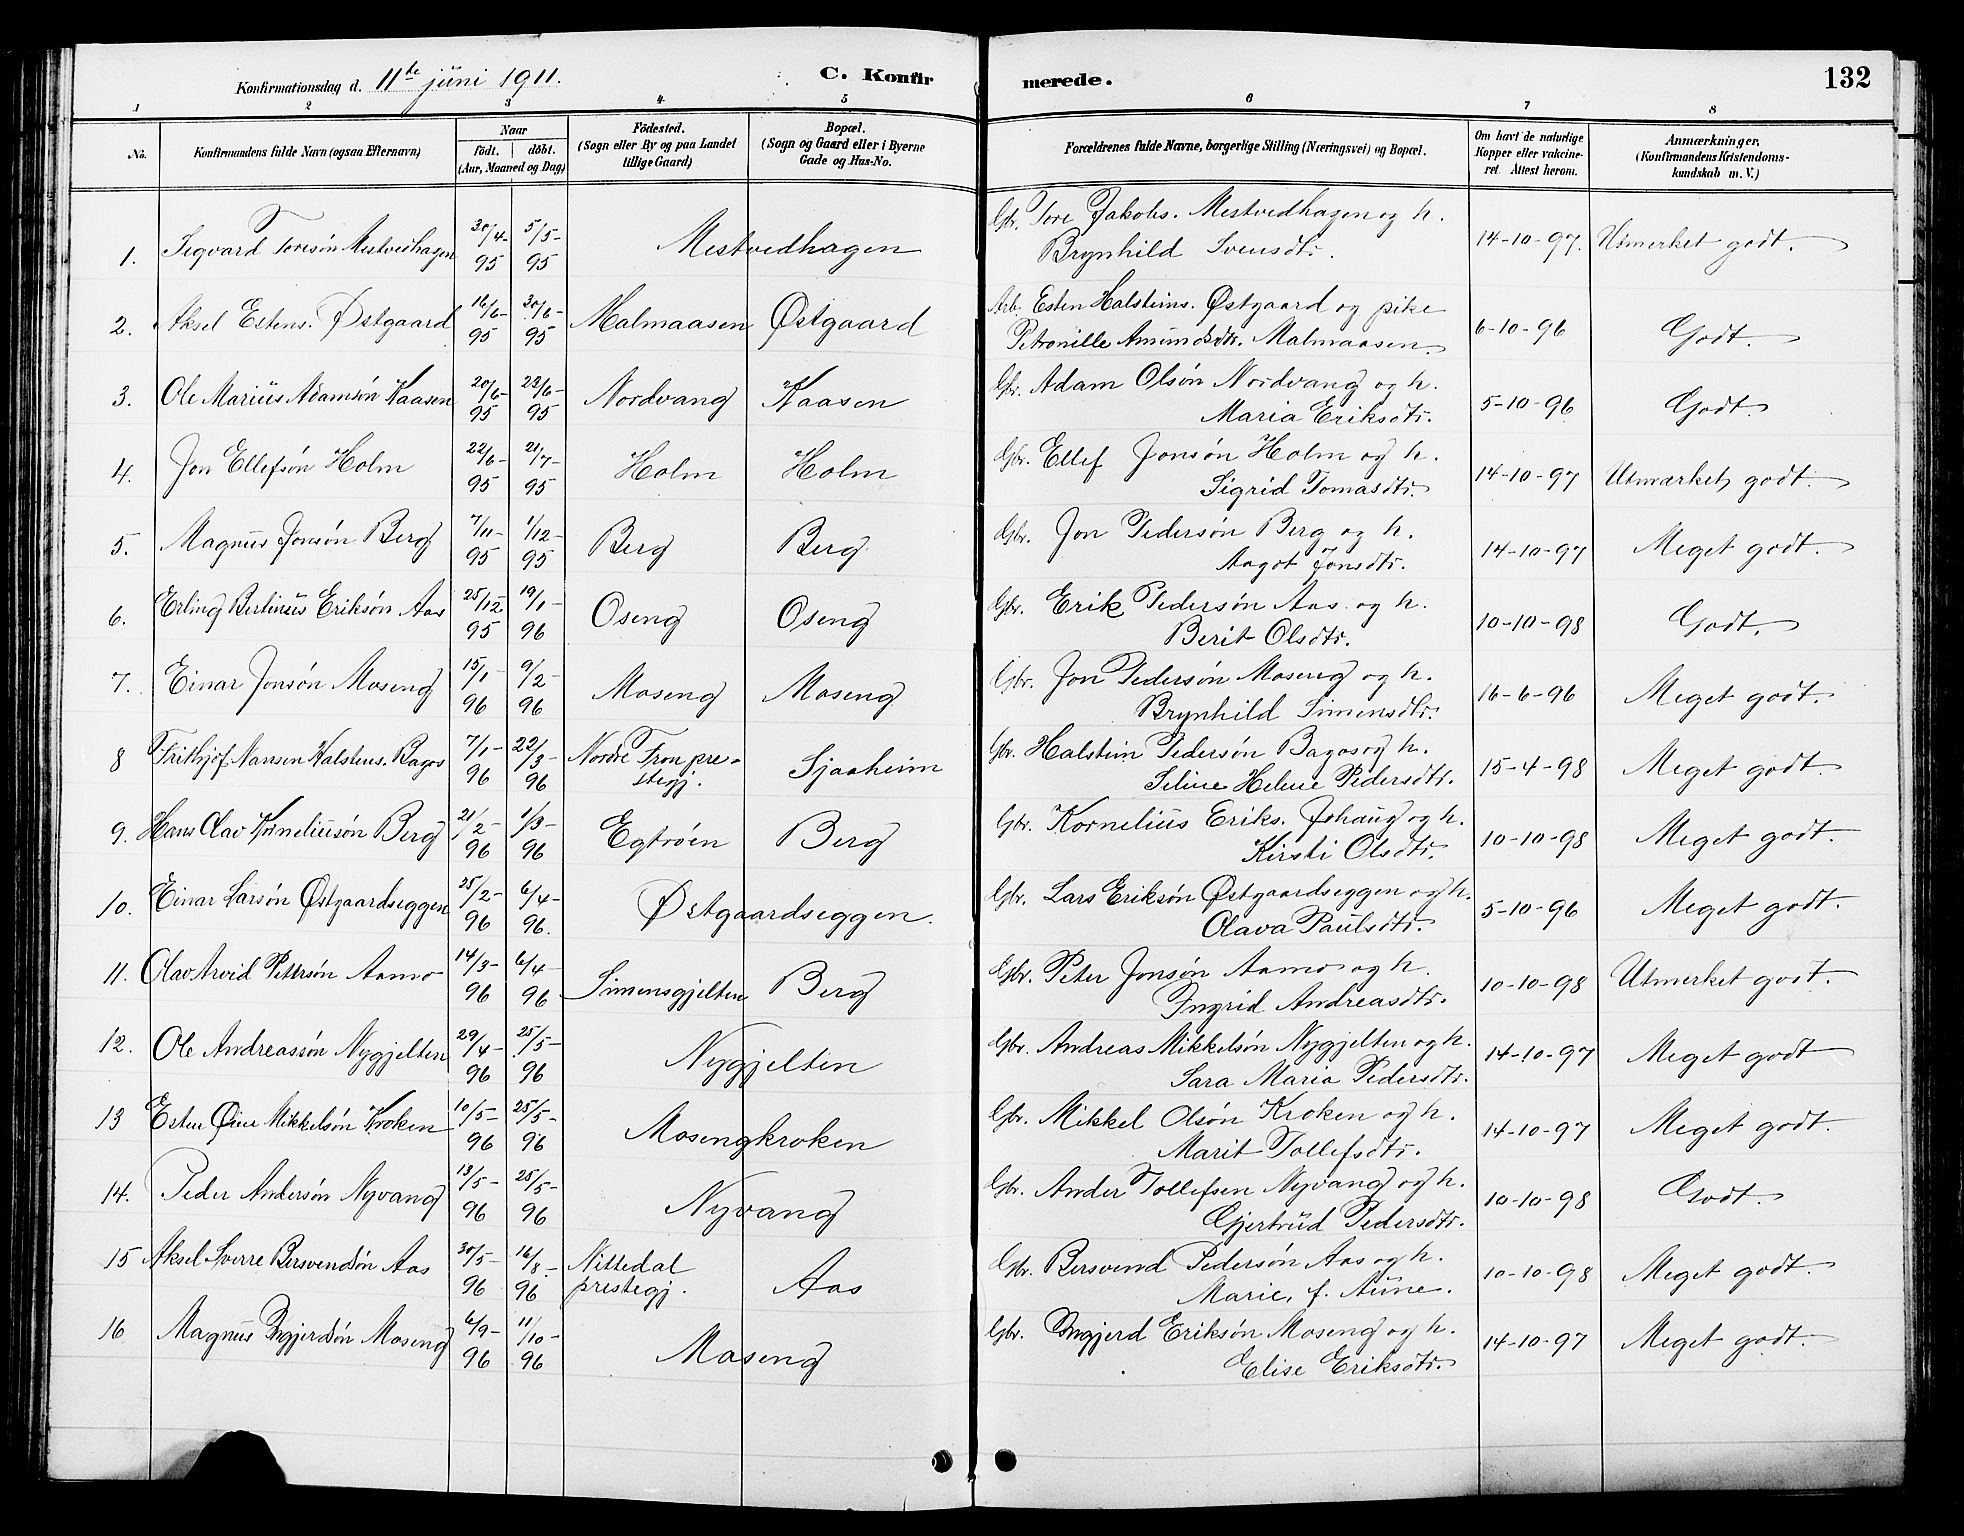 Konfirmationsdag d. 11te juni 1911. C. Konfirmerede. 132
1 2 3 4 5 6 7 8
No. Konfirmandens fulde Navn (ogsaa Efternavn) Naar födt. döbt. (Aar, Maaned og Dag) Födested. (Sogn eller By og paa Landet tillige Gaard) Bopæl. (Sogn og Gaard eller i Byerne Gade og Hus-No. Forældrenes fulde Navne, borgerlige Stilling (Næringsvei) og Bopæl. Om havt de naturlige Kopper eller vakcineret. Attest herom. Anmærkninger. (Konfirmandens Kristendomskundskab m. V.)
1. Sigvard Toresön Mestvedhagen 30/4-95 5/5-95 Mestvedhagen Gbr. Tore Jakobs. Mestvedhagen og h. Brynhild Svensdtr. 14-10-97. Utmerket godt.
2. Aksel Estens. Østgaard 16/6-95 30/6-95 Malmaasen Østgaard Arb. Esten Halsteins. Østgaard og pike Petronille Amundsdtr. Malmaasen 6-10-96 Godt.
3. Ole Marius Adamsön Kaasen 20/6-95 23/6-95 Nordvang Kaasen Gbr. Adam Olsön Nordvang og h. Maria Eriksdtr. 5-10-96 Godt.
4. Jon Ellefsön Holm 22/6-95 21/7-95 Holm Holm Gbr. Ellef Jonsön Holm og h. Sigrid Tomasdtr. 14-10-97 Utmærket godt.
5. Magnus Jonsön Berg 7/11-95 1/12-95 Berg Berg Gbr. Jon Pedersön Berg og h. Aagot Jonsdtr. 14-10-97 Meget godt.
6. Erling Bertinius Eriksön Aas 25/12 95 19/1-96 Oseng Oseng Gbr. Erik Pedersön Aas og h. Berit Olsdtr. 10-10-98 Godt.
7. Einar Jonsön Moseng 15/1-96 9/2-96 Moseng Moseng Gbr. Jon Pedersön Moseng og h. Brynhild Simensdtr. 16-6-96 Meget godt.
8 Frithjof Nansen Halstens. Bagos 7/1-96 22/3-96 Nordre Fron prestegj. Sjaaheim Gbr. Halstein Pedersön Bagos og h. Seline Helene Pedersdtr. 15-4-98 Meget godt.
9. Hans Olav Korneliusön Berg 21/2-96 1/3-96 Egtröen Berg Gbr. Kornelius Eriks. Jshaug og h. Kirsti Olsdtr. 10-10-98 Meget godt.
10. Einar Larsön Østgaardseggen 25/2-96 6/4-96. Østgaardseggen. Gbr. Lars Eriksön Østgaardseggen og h. Olava Paulsdtr. 5-10-96 Meget godt.
11. Olav Arvid Pettersön Aamo 14/3-96 6/4-96 Simensgjelten Berg Gbr. Peter Jonsön Aamo og h. Ingrid Andreasdtr. 10-10-98 Utmerket godt.
12. Ole Andreassön Nygjelten 29/4-96 25/5-96 Nygjelten Gbr. Andreas Mikkelsön Nygjelten og h. Sara Maria Pedersdtr. 14-10-97 Meget godt
13 Esten Øine Mikkelsön Kroken 10/5-96 25/5-96 Mosengkroken Gbr. Mikkel Olsön Kroken og h. Marit Tollefsdtr. 14-10-97 Meget godt.
14. Peder Andersön Nyvang 13/5-96 25/5-96 Nyvang Gbr. Ander Tollefsen Nyvang og h. Gjertrud Pedersdtr. 10-10-98 Godt.
15 Aksel Sverre Bersvendsön Aas 30/5-96 16/8-96 Nittedal prestegj. Aas Gbr. Bersvend Pedersön Aas og h. Marie, f. Aune. 10-10-98 Meget godt.
16 Magnus Ingjerdsön Moseng 6/9-96 11/10-96 Moseng Gbr. Ingjerd Eriksön Moseng og h. Elise Eriksdtr. 14-10-97 Meget godt.